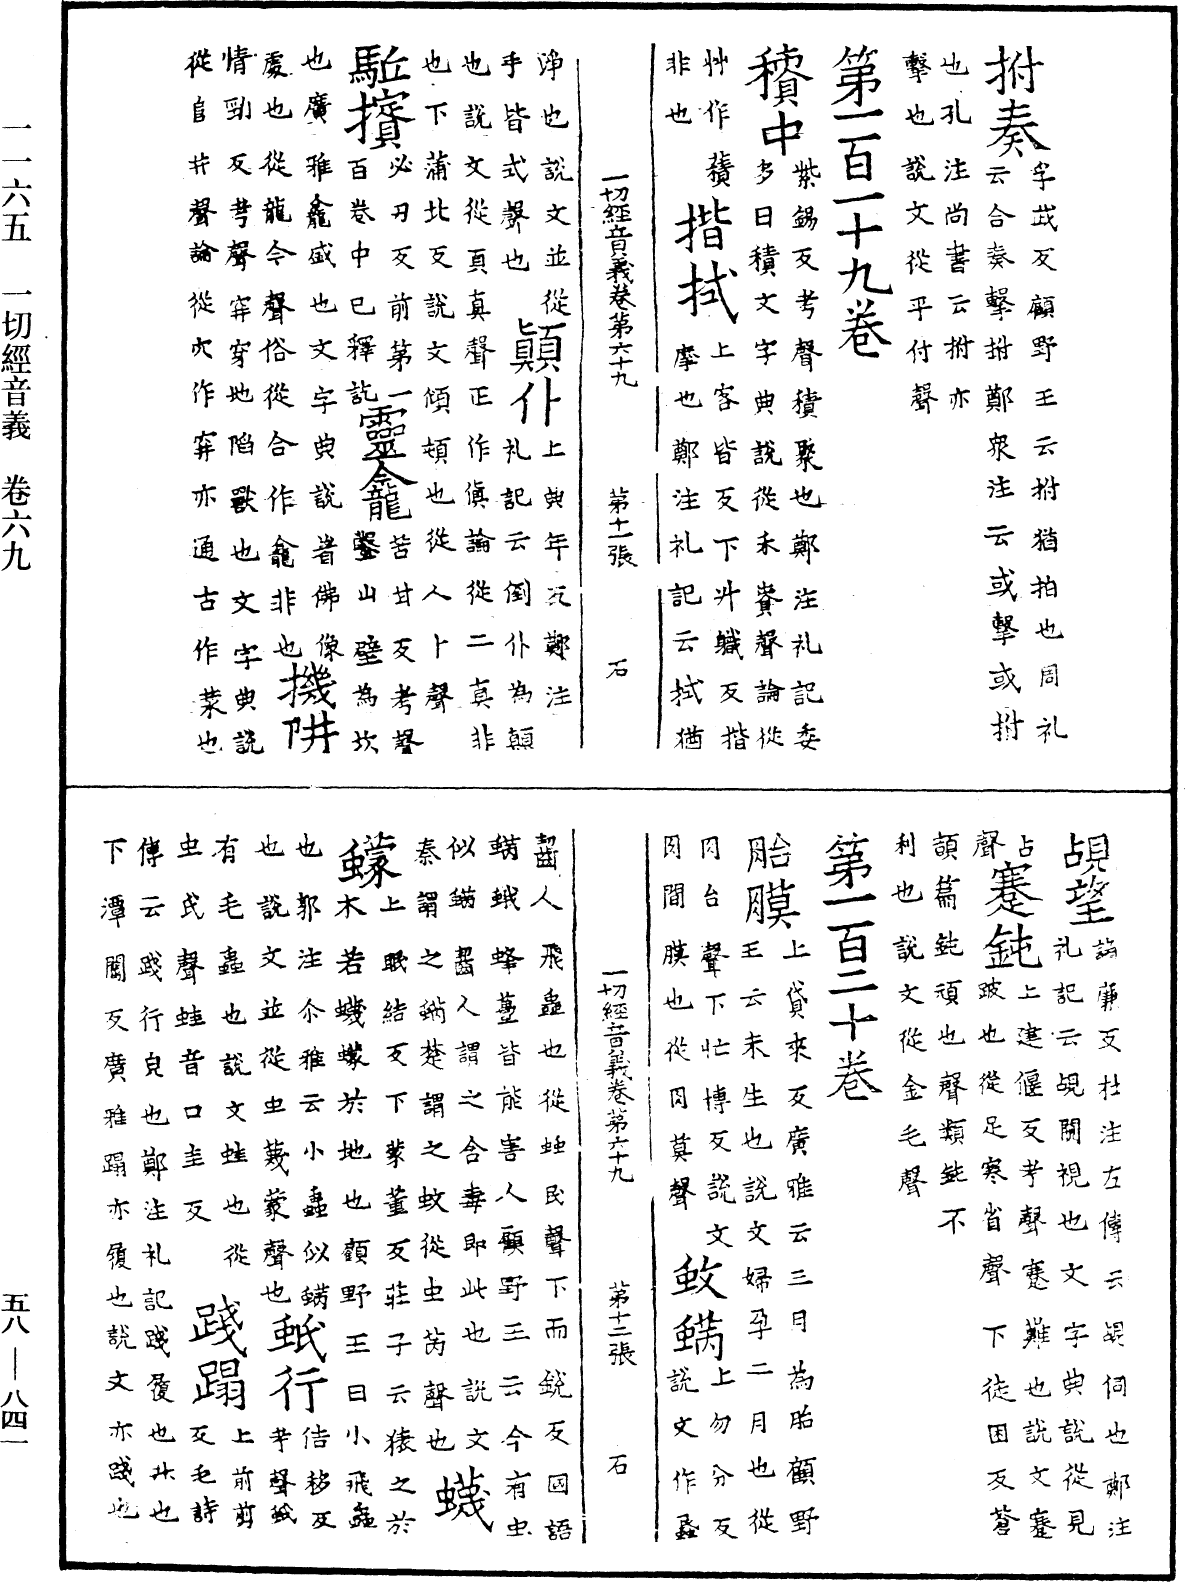 拊奏孚武反顧野王云拊猶拍也周礼
云合奏擊拊鄭衆注云或擊或拊
也孔注尚書云拊亦
擊也說文從手付聲
第一百一十九卷
積中紫錫反考聲積聚也鄭注礼記委
多曰積文字典說從禾賷聲論從
艸作𧂐揩拭上客皆反下升軄反揩
非也摩也鄭注礼記云拭猶
一切經音義卷第六十九 第十一張 石
淨也說文並從
手皆式聲也顛仆上典年反鄭注
礼記云倒仆為顛
也說文從頁真聲正作傎論從二真非
也下蒲北反說文傾頓也從人卜聲
駈擯必刃反前第一
百卷中已釋訖靈龕苦甘反考聲
鑿山壁為坎
也廣雅龕盛也文字典說著佛像
處也從龍今聲俗從合作龕非也機阱
情勁反考聲穽穿地陷獸也文字典說
從𨸏井聲論從穴作穽亦通古作汬也
覘望諂廉反杜注左傳云覘伺也鄭注
礼記云覘闚視也文字典說從見
占聲蹇鈍上建偃反考聲蹇難也說文蹇
跛也從足寒省聲下徒困反蒼
頡篇鈍頑也聲類鈍不
利也說文從金屯聲
第一百二十卷
胎膜上貸來反廣雅云三月為胎顧野
王云未生也說文婦孕二月也從
肉台聲下忙博反說文
肉間膜也從肉莫聲蚊蟎上勿分反
說文作蟁
一切經音義卷第六十九 第十二張 石
齧人飛蟲也從䖵民聲下而銳反國語
蟎蛾蜂蠆皆能害人顧野王云今有虫
似蟎齧人謂之含毒即此也說文
秦謂之蟎楚謂之蚊從虫芮聲也蠛
蠓上眠結反下蒙董反莊子云猿之於
木若蠛蠓於地也顧野王曰小飛蟲
也郭注尒雅云小蟲似蟎
也說文並從虫蔑蒙聲也蚔行佶移反
芉聲蚔
有毛蟲也說文蛙也從
虫氏聲蛙音口圭反踐蹋上前剪
反毛詩
傳云踐行皃也鄭注礼記踐履也廾也
下潭闔反廣雅蹋亦履也說文亦踐也
一一六五 一切經音義 卷六九
五八—八四一